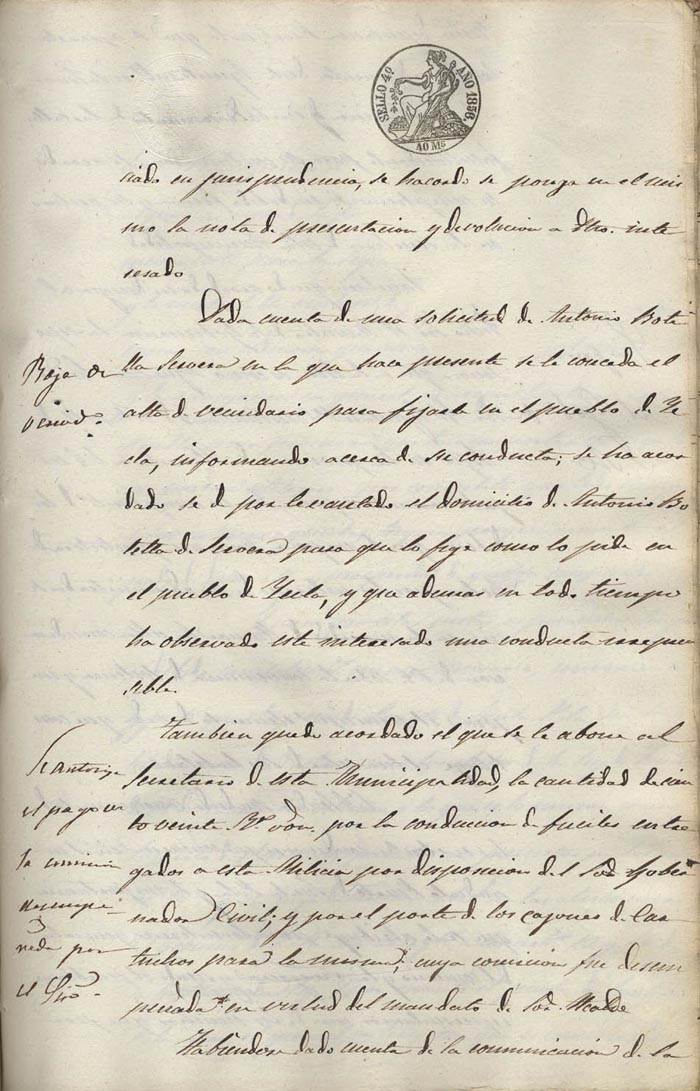 SELLO 4º AÑO 1856.
40 Ms
ciado en jurisprudencia, se hacordo se ponga en el mis
mo la nota de presentacion y devolucion a dho. inte
resado
Dada cuenta de una solicitud de Antonio Bote
lla Servera en la que hace presente se le conceda el
Baja de
vecind.º
alta de vecindario para fijarle en el pueblo de Ye
cla, informando acerca de su conducta; se ha acor
dado se dé por levantado el domicilio de Antonio Bo
tella de Servera para que lo fige como lo pide en
el pueblo de Yecla, y que ademas en todo tiempo
ha observado este interesado una conducta irrepren
sible.
Tambien quedo acordado el que se le abone al
Se autoriza
el pago de
la comision
desempe
ñada por
el Srio.
Secretario de esta Municipalidad, la cantidad de cien
to veinte Rs. von. por la conduccion de fuciles entre
gados a esta Milicia por disposicion del Sor. Gober
nador Civil; y por el porte de los cajones de Car
tuchos para la misma; cuya comicion fue desem
peñada en virtud del mandato de Sor. Alcalde
Habiendose dado cuenta de la comunicacion de la